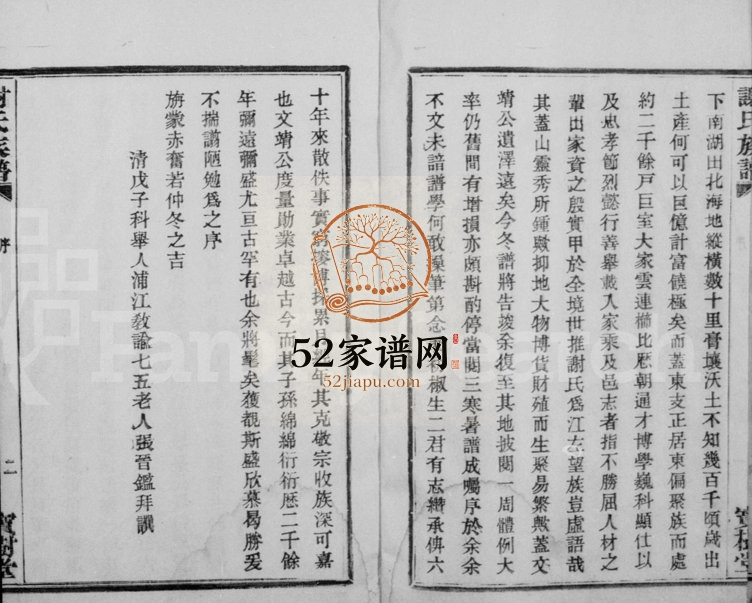 謝氏族譜
寶樹堂
下南湖田北海地縱橫數十里膏壤沃土不知幾百千頃歲出
土產何可以巨億計富饒極矣而蓋東支正居東偏聚族而處
約二千餘戶巨室大家雲連櫛比歷朝通才博學巍科顯仕以
及忠孝節烈懿行善舉載入家乘及邑志者指不勝屈人材之
輩出家資之殷實甲於全境世推謝氏爲江左望族豈虛語哉
其蓋山靈秀所鍾歟抑地大物博貨財殖而生聚易繁歟蓋文
靖公遺澤遠矣今冬譜將告竣余復至其地披閱一周體例大
率仍舊間有增損亦頗斟酌停當閱三寒暑譜成囑序於余余
不文未諳譜學何敢操筆第念 椒生二君有志纘承俾六
十年來散佚事實 年其克敬宗收族深可嘉
也文靖公度量勛業卓越古今而其子孫綿綿衍衍歷二千餘
年彌遠彌盛尤亘古罕有也余將耄矣獲覩斯盛欣慕曷勝爰
不揣譾陋勉爲之序
旃蒙赤奮若仲冬之吉
清戊子科舉人浦江敎諭七五老人張晉鑑拜譔
序
二
寶樹堂
52家谱网
52jiapu.com